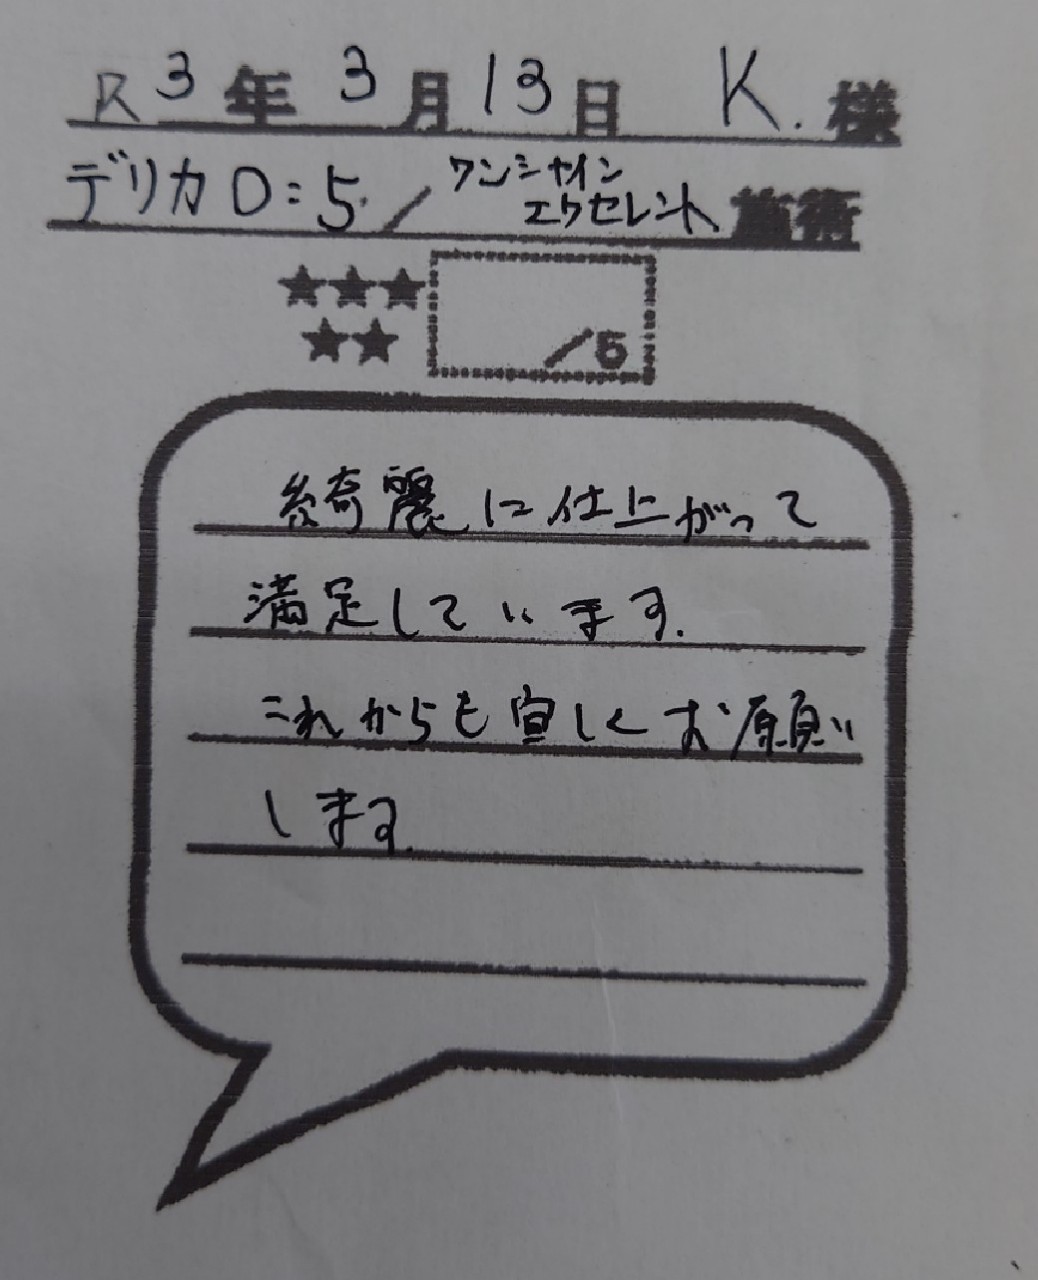 R3年3月13日 K.様
デリカD:5/ワンシャイン
エクセレント施術
★★★
★★ /5
綺麗に仕上がって
満足しています.
これからも宜しくお願い
します.